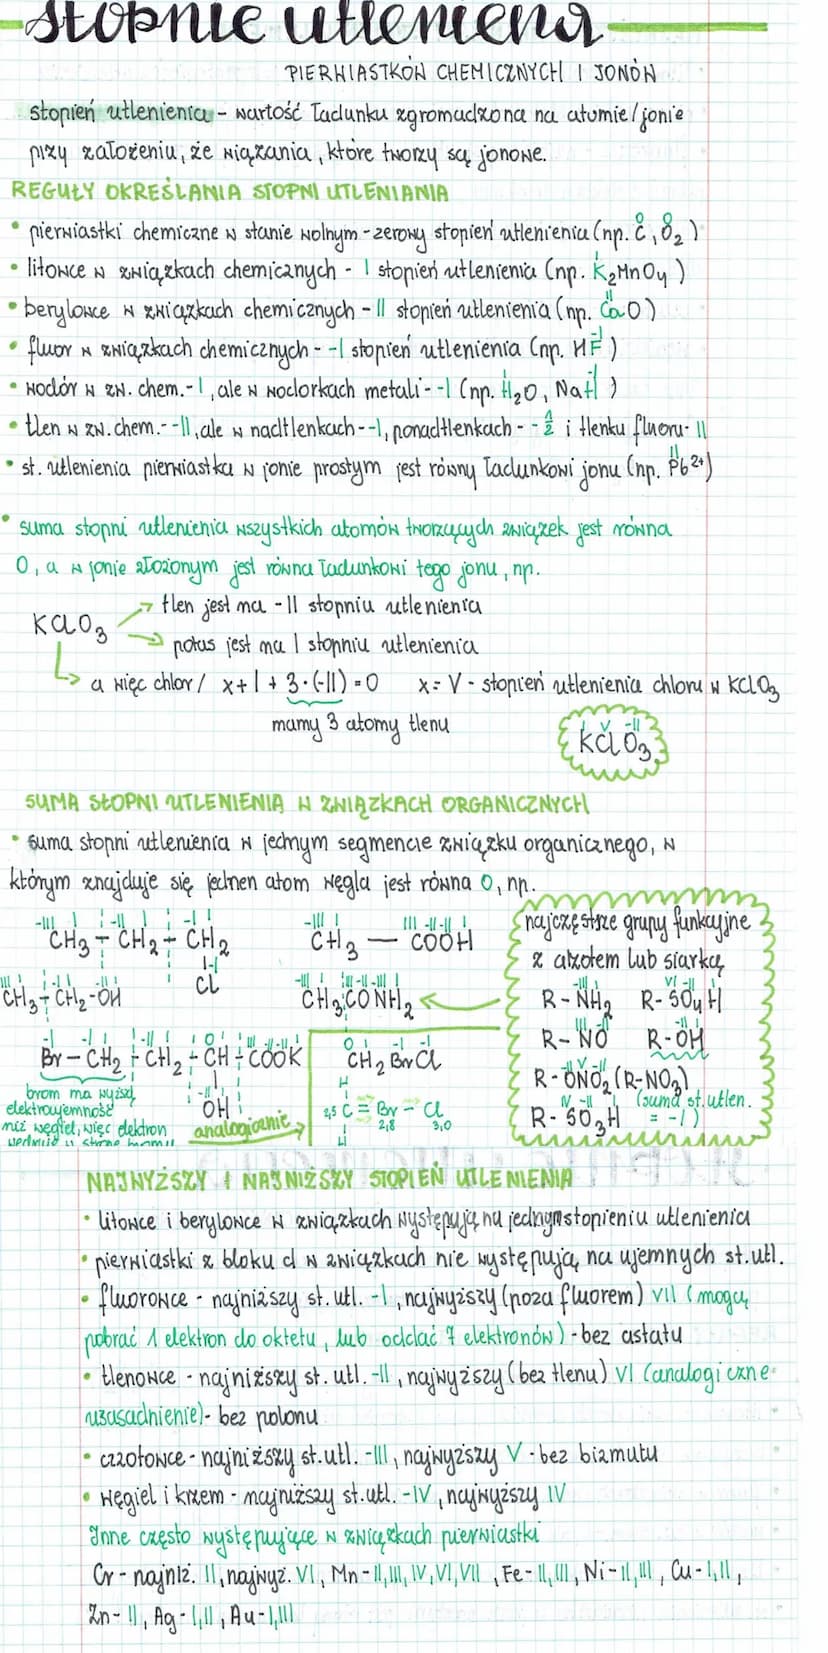 stopnie utlenienia
PIERWIASTKÓW CHEMICZNYCH I JONÓW
stopień utlenienia - wartość ładunku zgromadzona na atomie/jonie
przy założeniu, że wiązania, które tworzy są jonowe.
REGUŁY OKREŚLANIA STOPNI UTLENIANIA
• pierwiastki chemiczne w stanie wolnym - zerowy stopień utlenienia (np. C⁰, O₂⁰)
• litowce w związkach chemicznych - I stopień utlenienia (np. K₂MnO₄)
• berylowce w związkach chemicznych - II stopień utlenienia (np. CaO)
• fluor w związkach chemicznych - -I stopień utlenienia (np. HF)
• wodór w zw. chem. - I, ale w wodorkach metali - -I (np. H₂O, NaH)
• tlen w zw. chem. - -II, ale w nadtlenkach - -I, ponadtlenkach - -½ i tlenku fluoru - II
• st. utlenienia pierwiastka w jonie prostym jest równy ładunkowi jonu (np. Pb²⁺)
• suma stopni utlenienia wszystkich atomów tworzących związek jest równa
0, a w jonie złożonym jest równa ładunkowi tego jonu, np.
tlen jest na -II stopniu utlenienia
KClO₃
potas jest na I stopniu utlenienia
a więc chlor / x + I + 3·(-II) = 0 x = V - stopień utlenienia chloru w KClO₃
mamy 3 atomy tlenu
I V -II
KClO₃
SUMA STOPNI UTLENIENIA W ZWIĄZKACH ORGANICZNYCH
• suma stopni utlenienia w jednym segmencie związku organicznego, w
którym znajduje się jeden atom węgla jest równa 0, np.
-III I -II I -I I
CH₃ - CH₂ - CH₂
-I
Cl
-III I III -II -II I
CH₃ — COOH
CH₃ - CH₂ - OH
CH₃CONH₂
Br - CH₂ - CH₂ - CH - COOK
OH
brom ma wyższą
elektroujemność
niż węgiel, więc elektron
wędruje w stronę bromu
analogicznie
0 I -I -I
CH₂BrCl
H
2,5 C = Br - Cl
2,8 3,0
H
najczęstsze grupy funkcyjne
z azotem lub siarką
R - NH₂ R - SO₄H
R - NO R - OH
R - ONO₂ (R-NO₃)
R - SO₃H (suma st. utlen.
= -I)
NAJWYŻSZY I NAJNIŻSZY STOPIEŃ UTLENIENIA
• litowce i berylowce w związkach występują na jednym stopieniu utlenienia
• pierwiastki z bloku d w związkach nie występują na ujemnych st. utl.
• fluorowce - najniższy st. utl. -I, najwyższy (poza fluorem) VII (mogą
pobrać 1 elektron do oktetu, lub oddać 7 elektronów) - bez astatu
• tlenowce - najniższy st. utl. -II, najwyższy (bez tlenu) VI (analogiczne
uzasadnienie) - bez polonu
• azotowce - najniższy st. utl. -III, najwyższy V - bez bizmutu
• węgiel i krzem - najniższy st. utl. -IV, najwyższy IV
Inne często występujące w związkach pierwiastki
Cr - najniż. II, najwyż. VI, Mn - II, III, IV, VI, VII, Fe - II, III, Ni - II, III, Cu - I, II,
Zn - II, Ag - I, II, Au - I, III